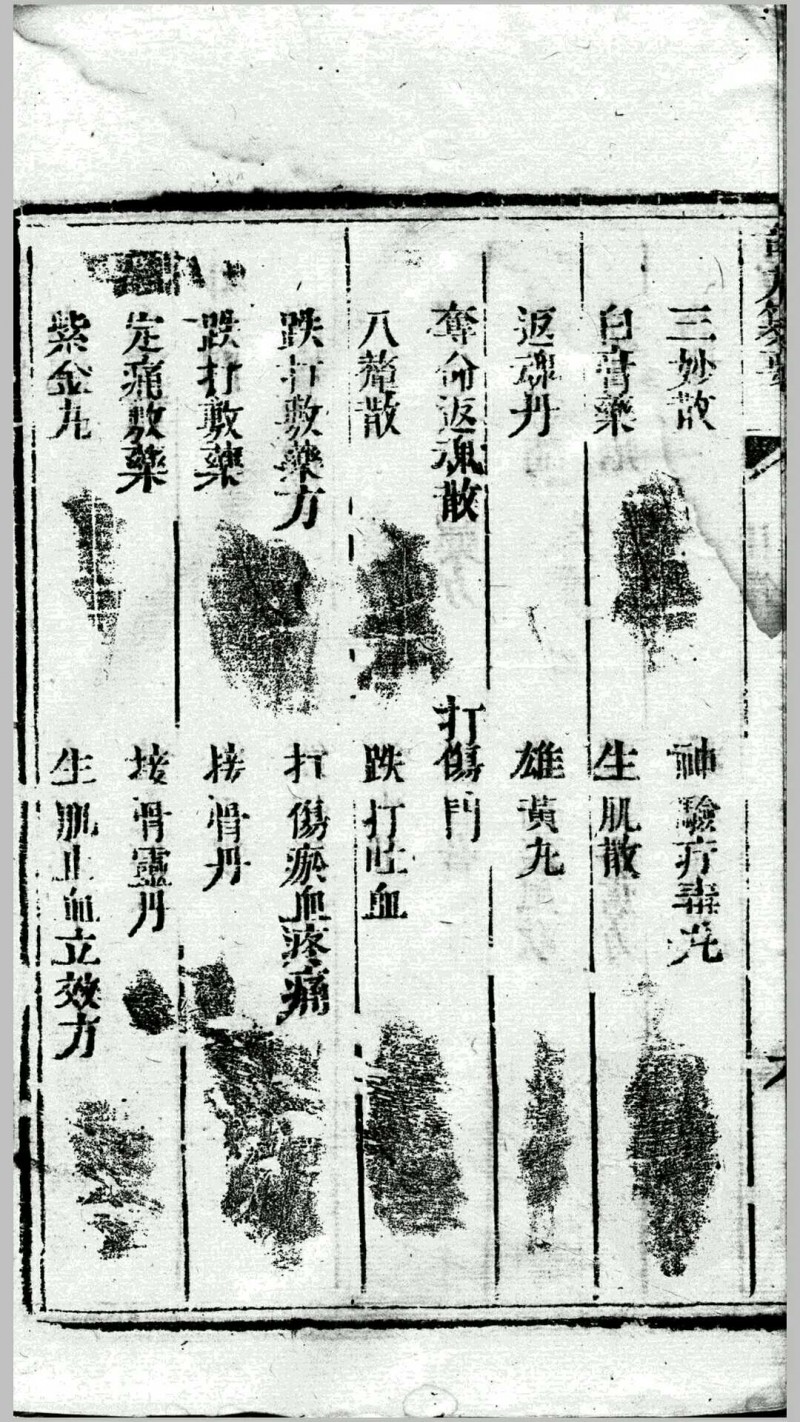 三妙散
神驗疔毒丸
白膏藥
生肌散
返魂丹
雄黃丸
奪命返魂散
打傷門
八釐散
跌打吐血
跌打敷藥方
打傷瘀血疼痛
跌打敷藥
接骨丹
定痛敷藥
接骨靈丹
紫金丸
生肌止血立效方